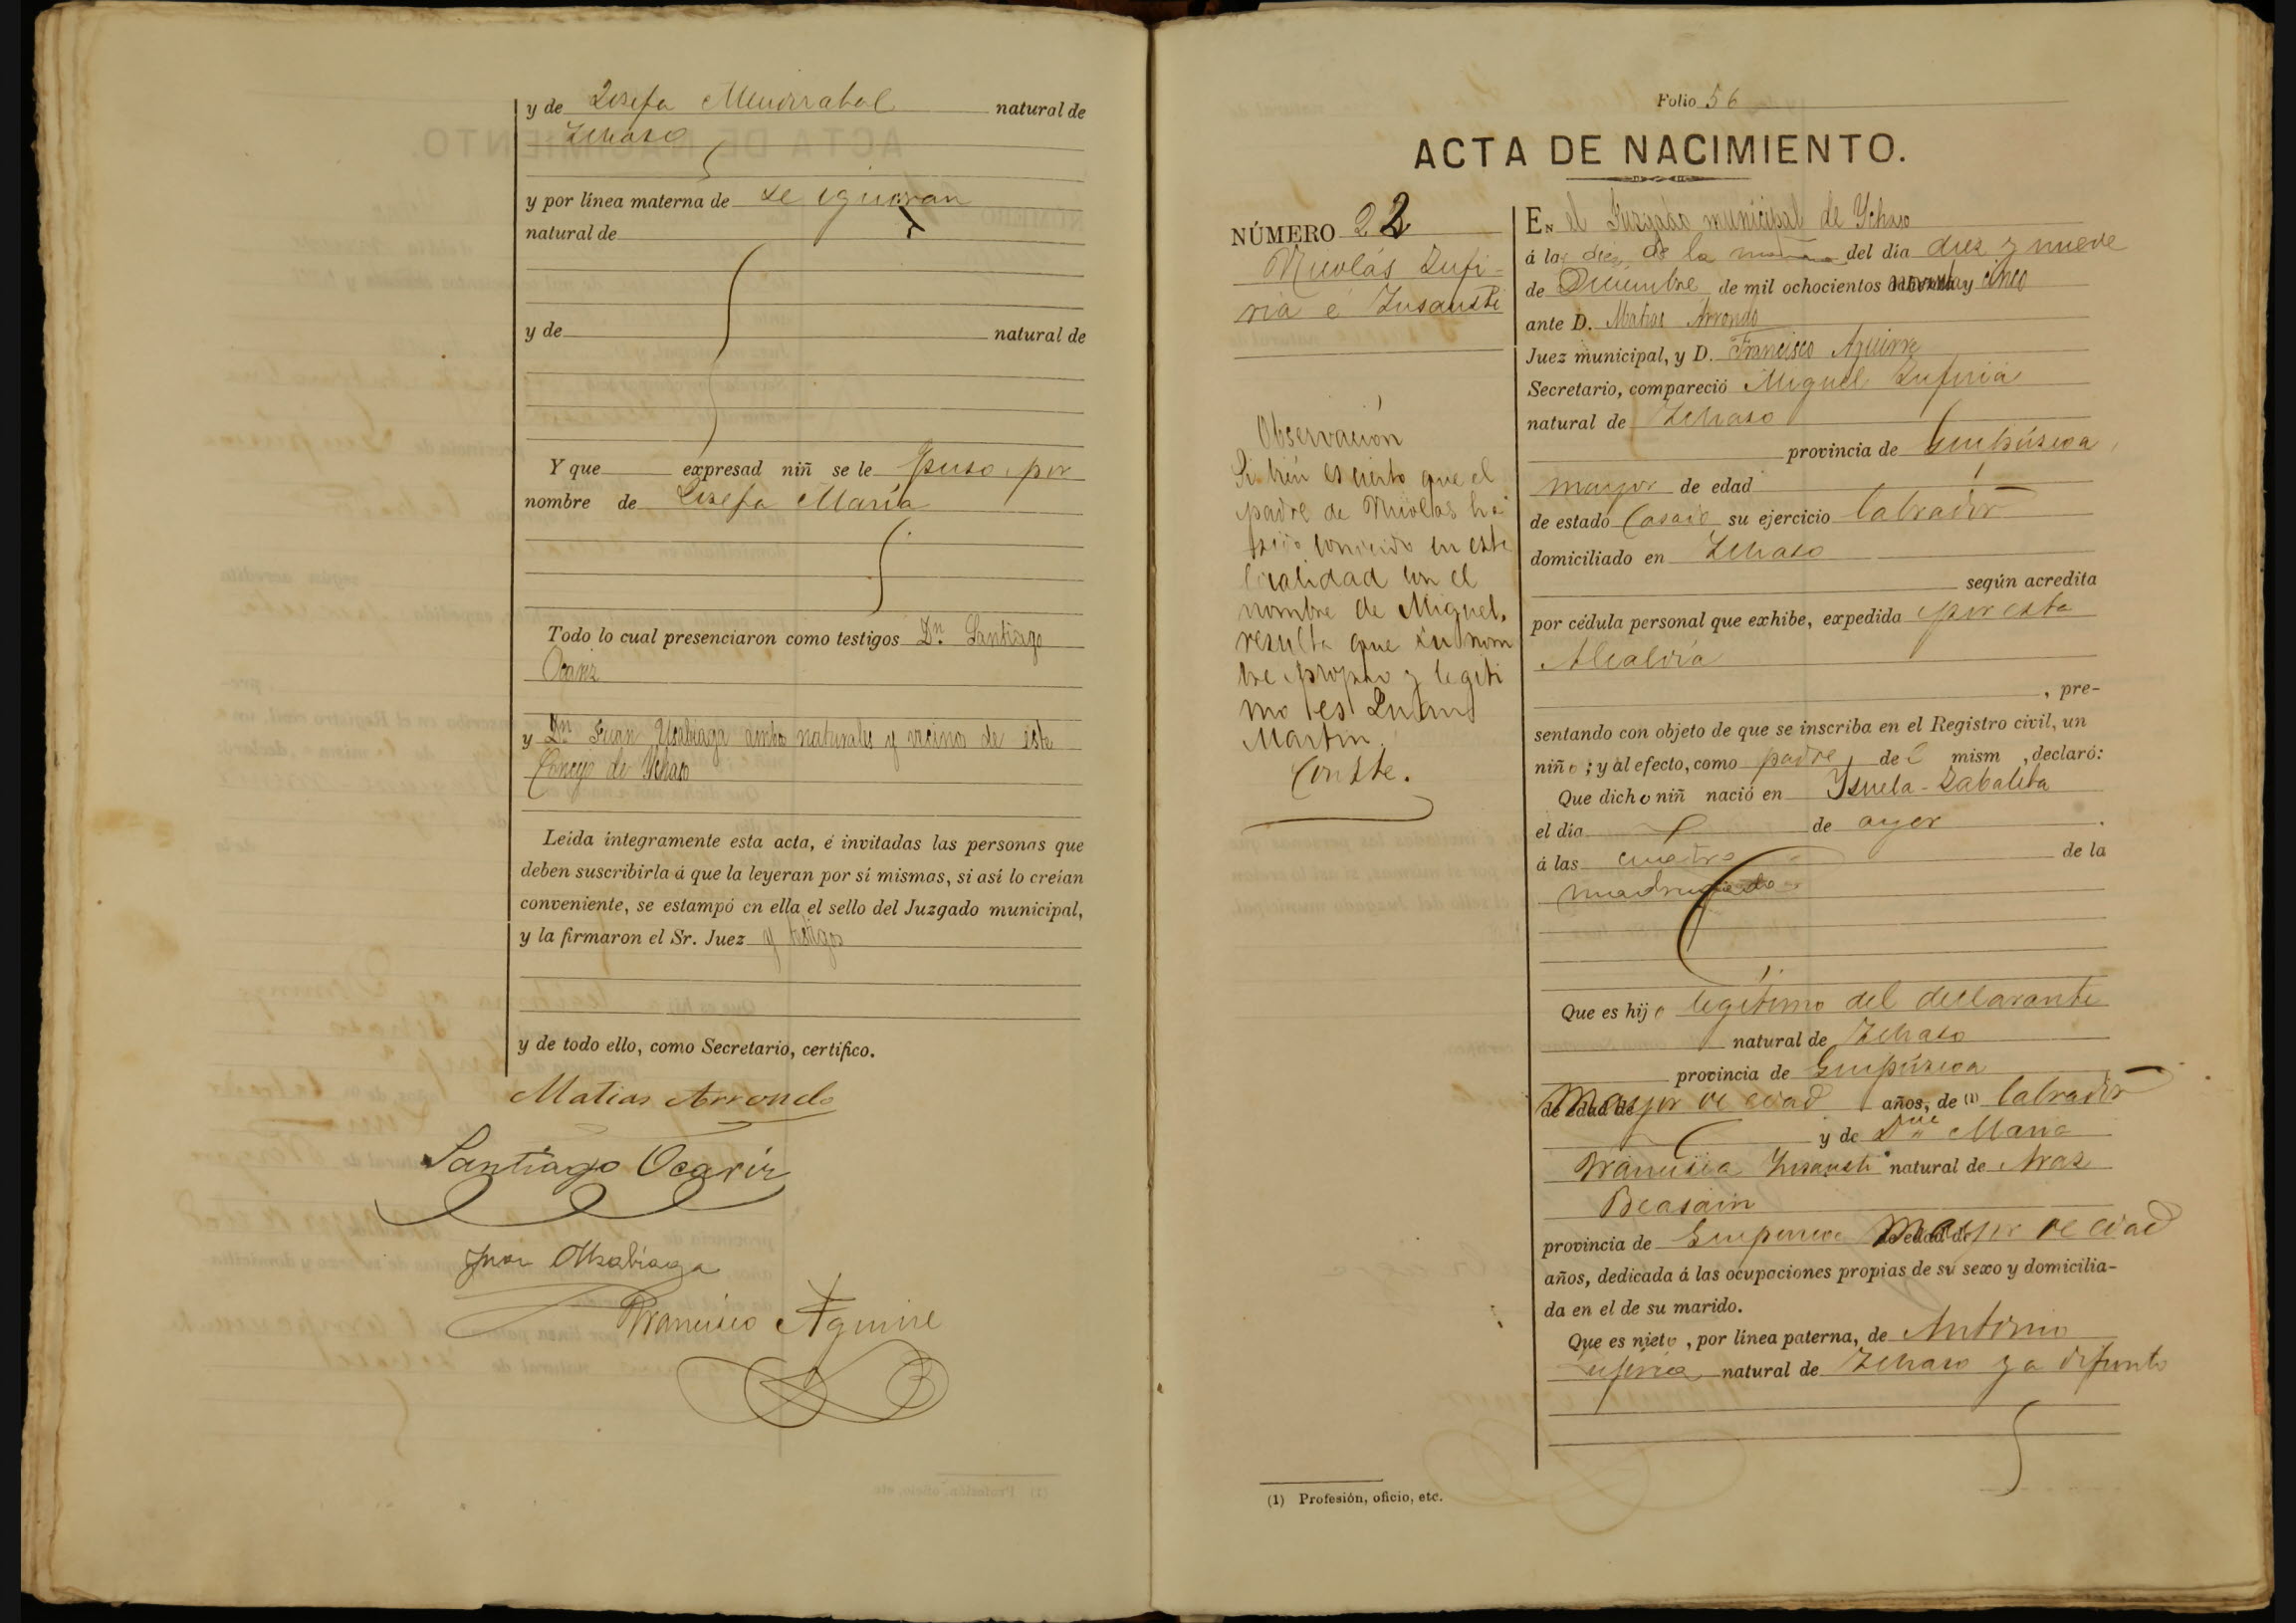 y de Josefa Mendizabal natural de
Ichaso
y por línea materna de se ignoran
natural de
y de natural de
Y que expresad niñ se le puso por
nombre de Josefa María
Todo lo cual presenciaron como testigos Dn. Santiago
Ocariz
y Dn Juan Usabiaga ambo naturales y vecino de este
Concejo de Ychaso
Leída íntegramente esta acta, é invitadas las personas que
deben suscribirla á que la leyeran por sí mismas, si así lo creían
conveniente, se estampó en ella el sello del Juzgado municipal,
y la firmaron el Sr. Juez y testigos
y de todo ello, como Secretario, certifico.
Matias Arrondo
Santiago Ocariz
Juan Usabiaga
Francisco Aguirre
Folio 56
ACTA DE NACIMIENTO.
NÚMERO 22
Nicolás Zufi-
ria é Insausti
Observación
Si bien es cierto que el
padre de Nicolas ha
sido conocido en esta
localidad con el
nombre de Miguel,
resulta que su nom
bre propio y legiti
mo es Juan
Martin.
Conste.
EN el Juzgado municipal de Ychaso
á las diez de la mañana del día diez y nueve
de Diciembre de mil ochocientos noventa y cinco
ante D. Matias Arrondo
Juez municipal, y D. Francisco Aguirre
Secretario, compareció Miguel Zufiria
natural de Ichaso
provincia de Guipúzcoa
mayor de edad
de estado Casado su ejercicio labrador
domiciliado en Ichaso
según acredita
por cédula personal que exhibe, expedida por esta
Alcaldía
, pre-
sentando con objeto de que se inscriba en el Registro civil, un
niño; y al efecto, como padre del mism , declaró:
Que dicho niñ nació en Ysuela-Zabaleta
el día de ayer
á las cuatro de la
madrugada
Que es hijo legítimo del declarante
natural de Ichaso
provincia de Guipúzcoa
de edad de Mayor de edad años, de (1) labrador
y de Dña Maria
Francisca Insausti natural de Araz
Beasain
provincia de Guipuzcoa de edad de Mayor de edad
años, dedicada á las ocupaciones propias de su sexo y domicilia-
da en el de su marido.
Que es nieto, por línea paterna, de Antonio
Zufiria natural de Ichaso ya difunto
(1) Profesión, oficio, etc.